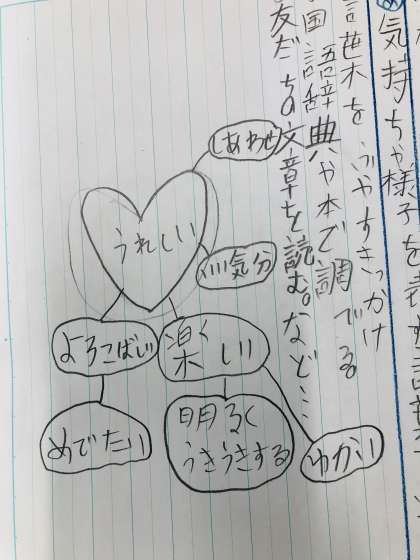 気持ちや様子を表す言
言葉をふやすきっかけ
国語辞典や本で調べる
友だちの文章を読む。など…
しあわせ
うれしい
いい気分
よろこばしい
楽しい
めでたい
明るく
うきうきする
ゆかい